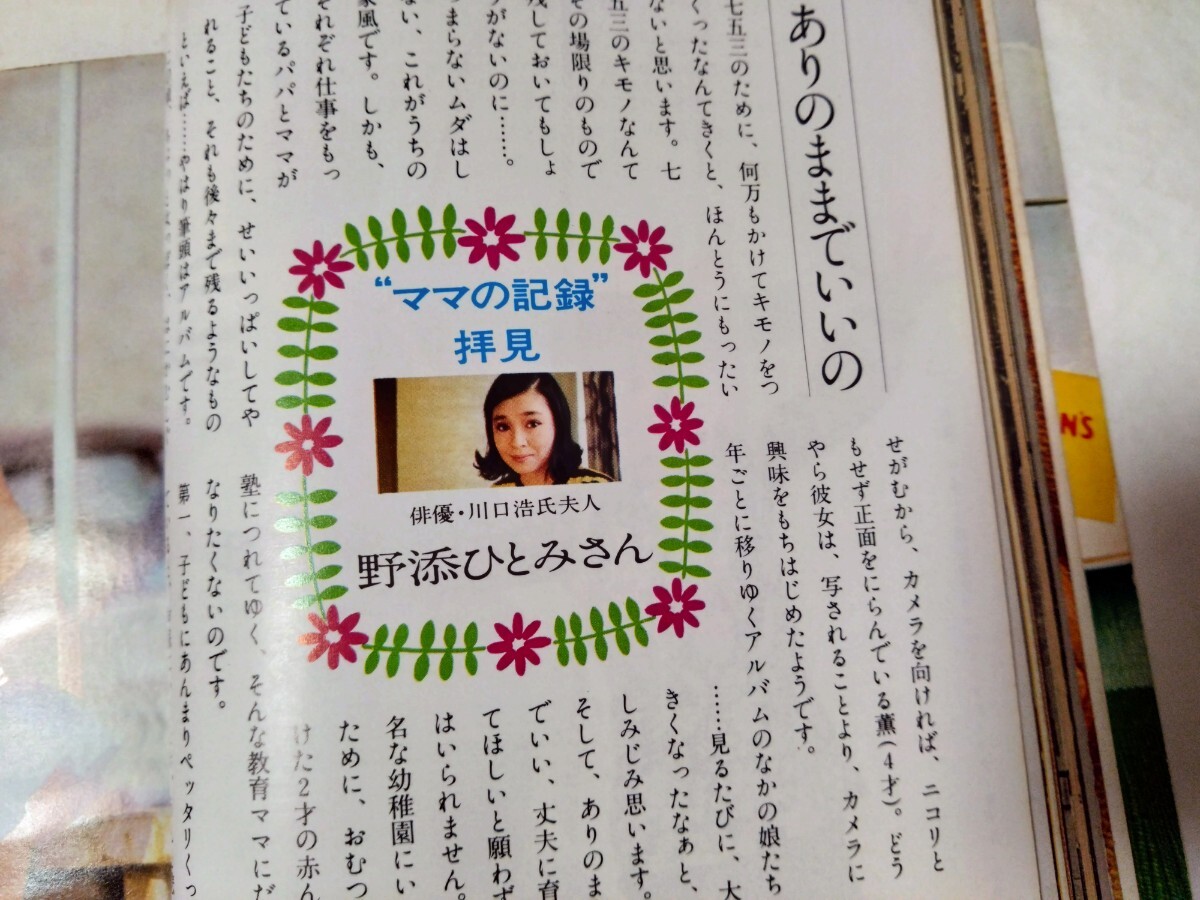 ありのままでいいの
七五三のために、何万もかけてキモノをつ
くったなんてきくと、ほんとうにもったい
ないと思います。七
五三のキモノなんて
その場限りのもので
残しておいてもしょ
うがないのに……。
つまらないムダはし
ない、これがうちの
家風です。しかも、
それぞれ仕事をもっ
ているパパとママが
子どもたちのために、せいいっぱいしてや
れること、それも後々まで残るようなもの
といえば……やはり筆頭はアルバムです。
“ママの記録”
拝見
俳優・川口浩氏夫人
野添ひとみさん
せがむから、カメラを向ければ、ニコリと
もせず正面をにらんでいる薫(4才)。どう
やら彼女は、写されることより、カメラに
興味をもちはじめたようです。
年ごとに移りゆくアルバムのなかの娘たち
……見るたびに、大
きくなったなぁと、
しみじみ思います。
そして、ありのま
でいい、丈夫に育
てほしいと願わず
はいられません。
名な幼稚園にい
ために、おむつ
けた2才の赤ん
塾につれてゆく、そんな教育ママにだ
なりたくないのです。
第一、子どもにあんまりペッタリくっ
N'S